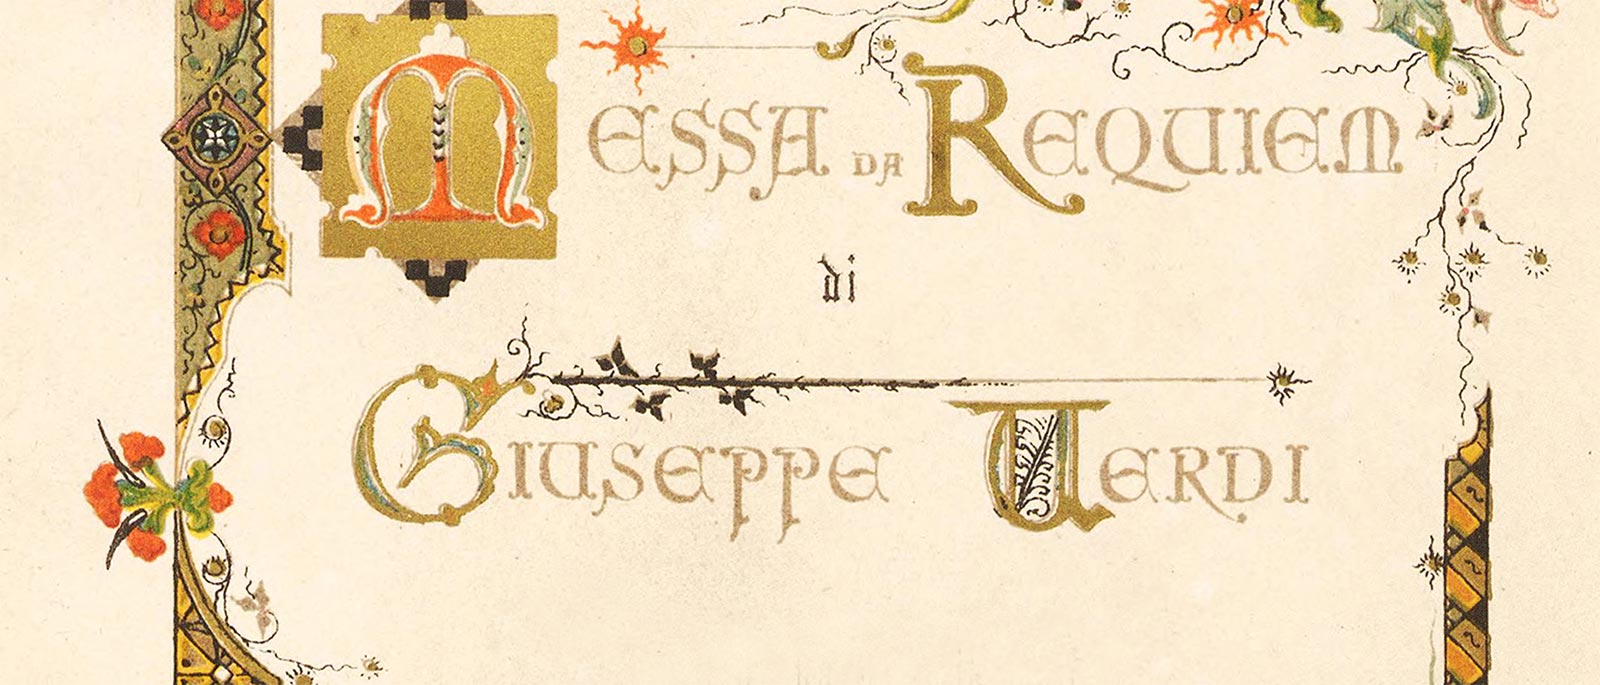 Messa da Requiem
di
Giuseppe Verdi